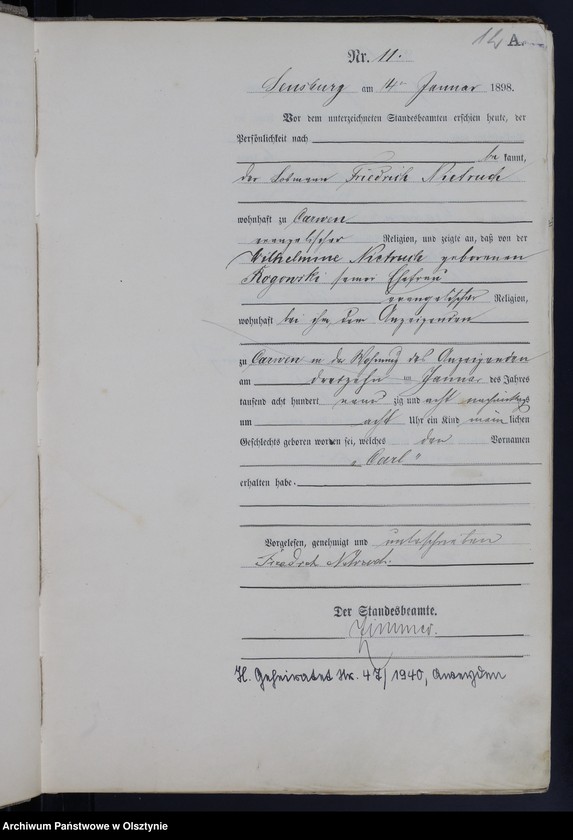 14 A.
Nr. 11.
Sensburg am 14ten Januar 1898.
Vor dem unterzeichneten Standesbeamten erschien heute, der
Persönlichkeit nach
be kannt,
der Losmann Friedrich Nietruch
wohnhaft zu Carwen
evangelischer Religion, und zeigte an, daß von der
Wilhelmine Nietruch geborenen
Rogowski seiner Ehefrau
evangelischer Religion,
wohnhaft bei ihm dem Anzeigenden
zu Carwen in der Wohnung des Anzeigenden
am dreizehn ten Januar des Jahres
tausend acht hundert neun zig und acht nachmittags
um acht Uhr ein Kind männ lichen
Geschlechts geboren worden sei, welches den Vornamen
„Carl“
erhalten habe.
Vorgelesen, genehmigt und unterschrieben
Friedrich Nietruch.
Der Standesbeamte.
Zimmer.
H. Geheiratet Nr. 47/1940, Aweyden
Archiwum Państwowe w Olsztynie